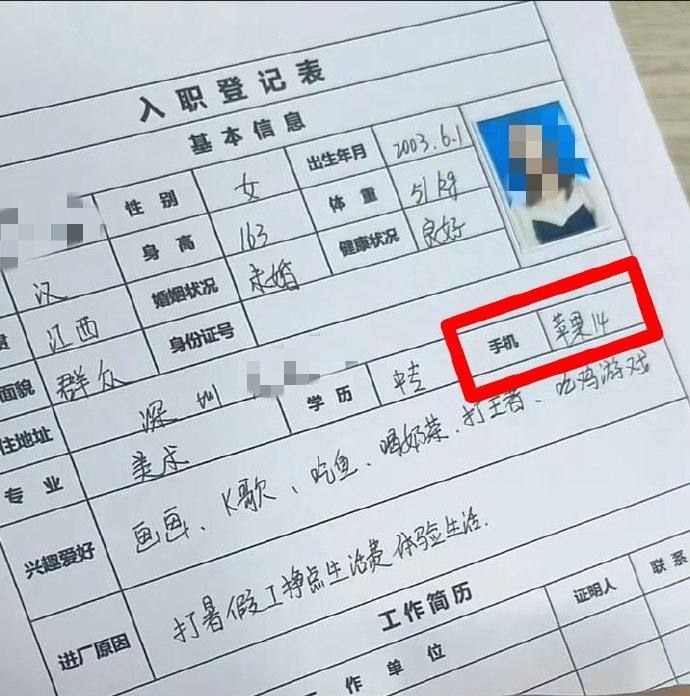 入职登记表
基本信息
性别 女 出生年月 2003.6.1
汉 身高 163 体重 51kg
贯 江西 婚姻状况 未婚 健康状况 良好
面貌 群众 身份证号
住地址 深圳 学历 手机 苹果14
专业 美术
兴趣爱好 画画、K歌、吃鱼、喝奶茶、打王者、吃鸡游戏
进厂原因 打暑假工挣点生活费体验生活.
工作简历
工作单位 证明人 联系